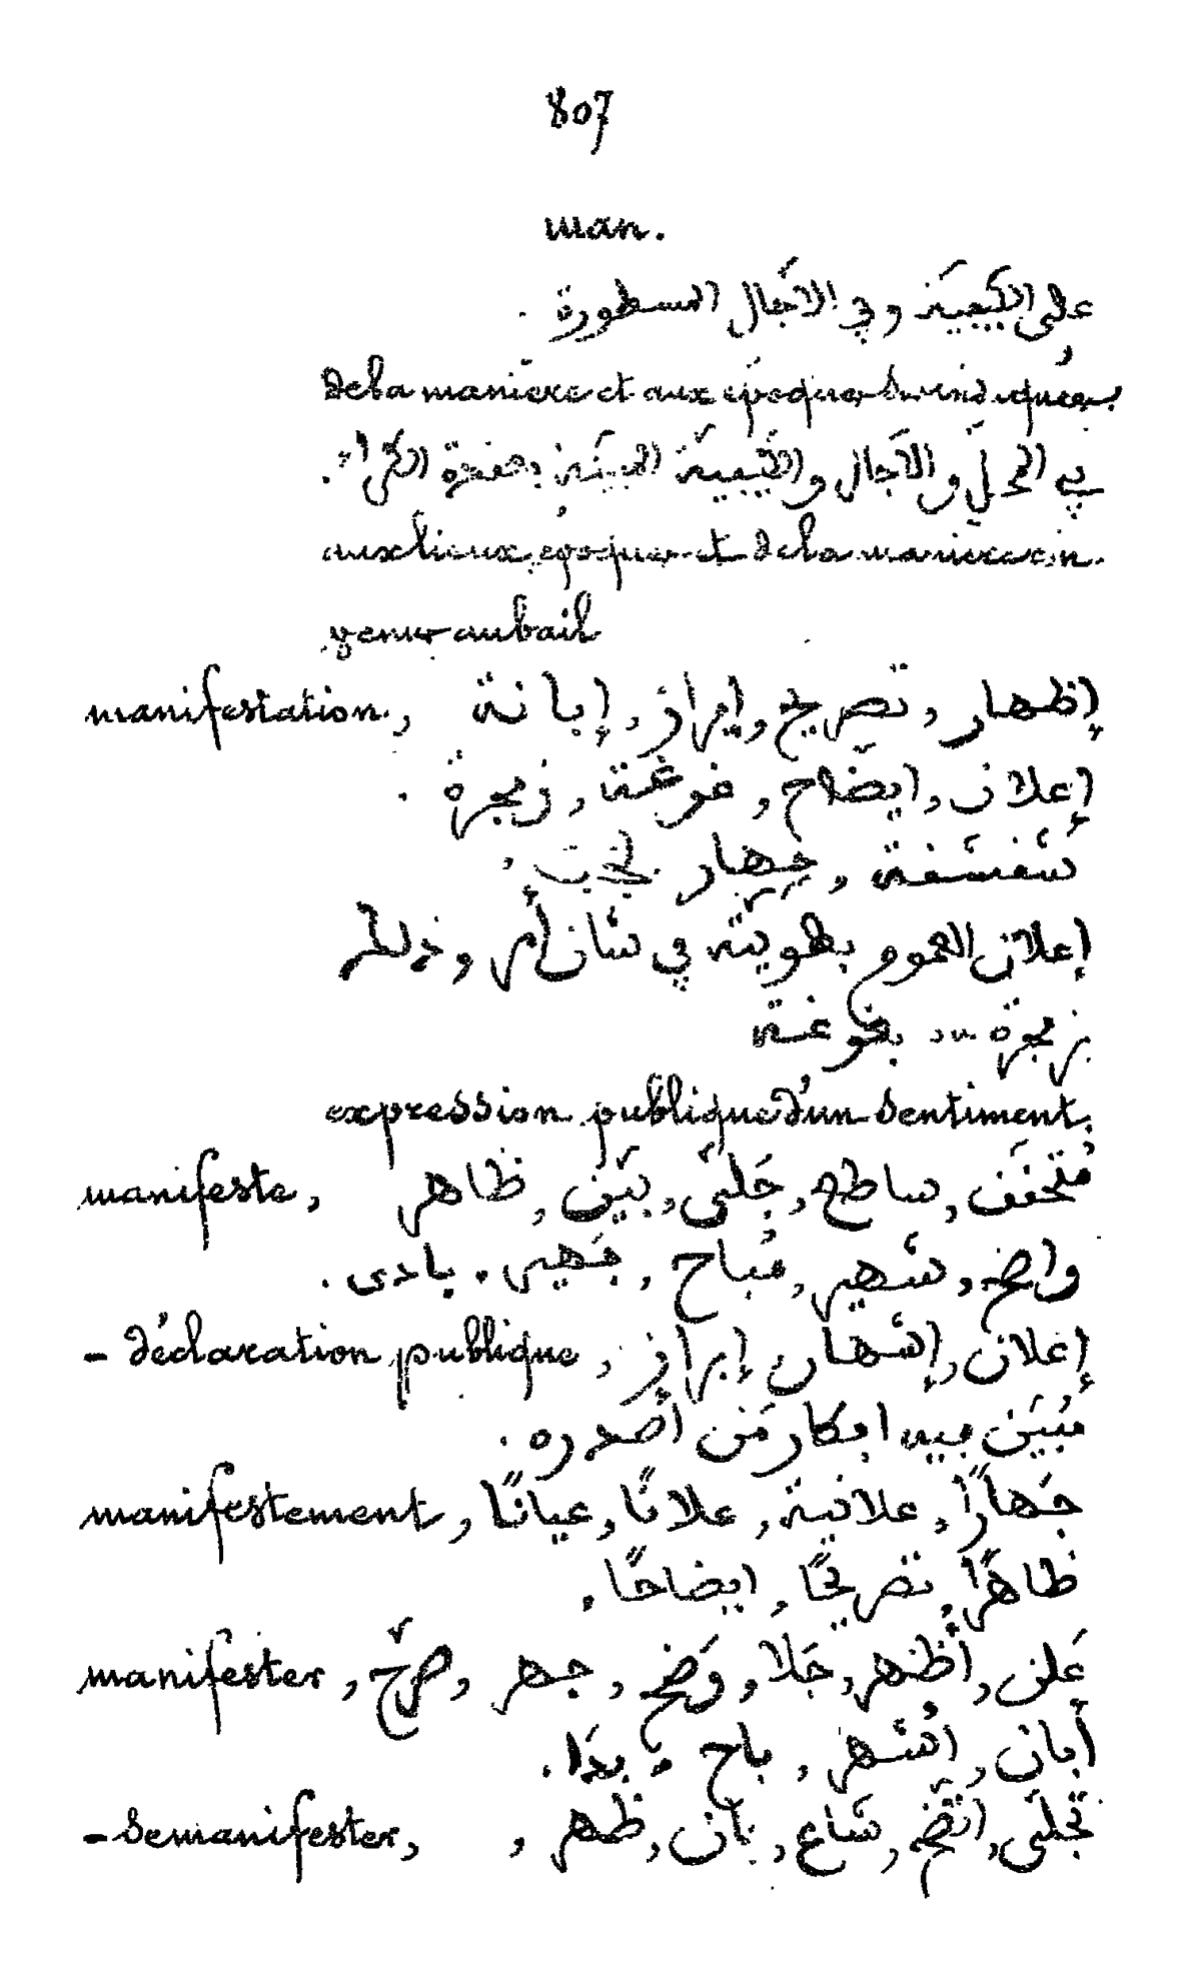 807
man.
على الكيفية وفي الآجال المسطورة .
de la manière et aux époques susindiquées.
في المحل والآجال والكيفية المبينة بعقدة الكراء .
aux lieux, époques et de la manière con-
venus au bail
manifestation, إظهار, تصريح, إبراز, إبانة
إعلان, ايضاح, غوغة, زمجرة .
شقشقة, جهار
إعلان العموم بطويته في شان أمر وذلك
بزمجرة ... بغوغة
expression publique d'un sentiment.
manifeste, متحقق, ساطع, جلي, بين, ظاهر
واضح, شهير, مباح, جهير, بادى .
- déclaration publique, إعلان, إشهار, إبراز
مبين فيه افكار من أصدره .
manifestement, جهارًا, علانية, علانًا, عيانًا
ظاهرًا, تصريحًا, ايضاحًا .
manifester, علن, أظهر, جلا, وضح, جهر, صرّح
أبان, اشهر, باح, بدا .
- se manifester, تجلى, اتضح, شاع, بان, ظهر,